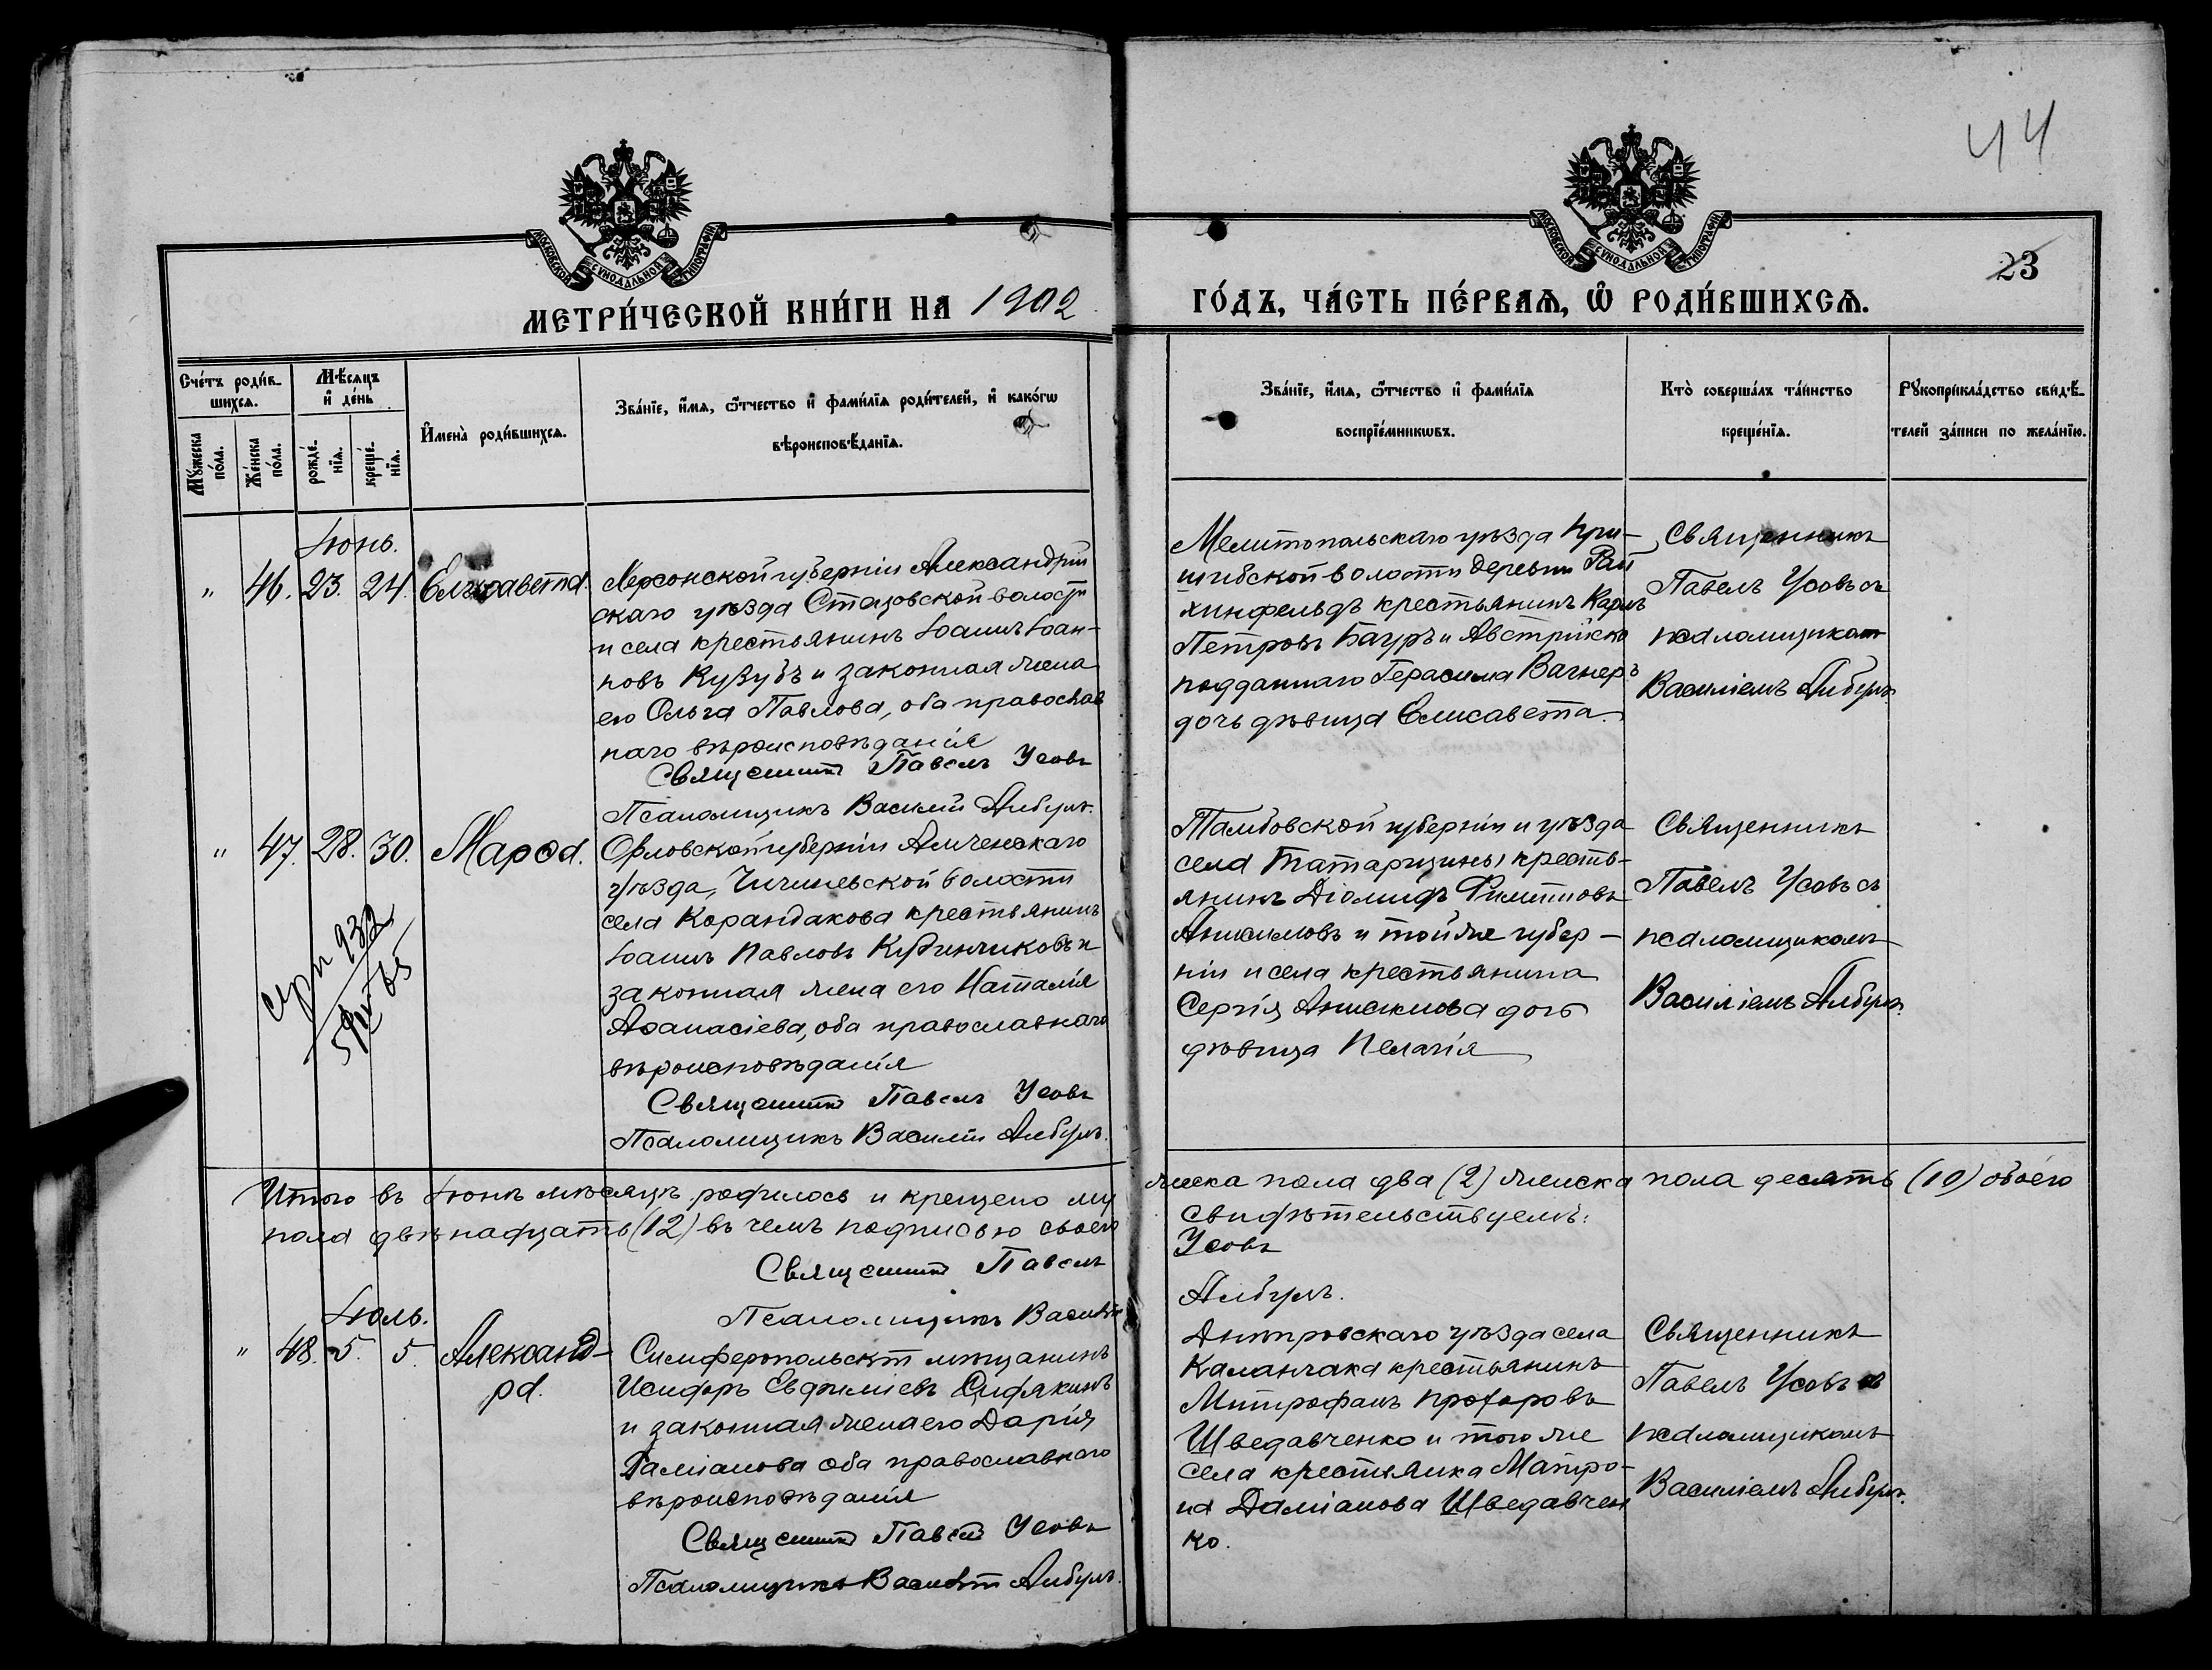 44
МОСКОВСКОЙ СѴНОДАЛЬНОЙ ТИПОГРАФІИ
МОСКОВСКОЙ СѴНОДАЛЬНОЙ ТИПОГРАФІИ
23
МЕТРИ́ЧЕСКОЙ КНИ́ГИ НА 1902
ГО́ДЪ, ЧА́СТЬ ПЕ́РВАѦ, Ѿ РОДИ́ВШИХСѦ.
Сче́тъ роди́в-
шихсѧ.
Мꙋ́жеска по́ла.
Же́нска по́ла.
Мѣ́сѧцъ
и҆ де́нь
рожде́-
нїѧ.
креще́-
нїѧ.
И҆мена̀ роди́вшихсѧ.
Зва́нїе, и҆́мѧ, ѻ҆́тчество и҆ фами́лїѧ роди́телей, и҆ како́гѡ
вѣроисповѣ́данїѧ.
Зва́нїе, и҆́мѧ, ѻ҆́тчество и҆ фами́лїѧ
воспрїе́мникѡвъ.
Кто̀ соверша́лъ та́инство
креще́нїѧ.
Рꙋкоприкла́дство свидѣ́-
телей за́писи по жела́нїю.
Іюнь.
" 46. 23. 24. Елисавета.
Херсонской губерніи Александрій
скаго уѣзда Стецовской волости
и села крестьянинъ Іоаннъ Іоан-
новъ Кузубъ и законная жена
его Ольга Павлова, оба православ
наго вѣроисповѣданія
Священникъ Павелъ Усовъ
Псаломщикъ Василій Албулъ.
Мелитопольскаго уѣзда При-
шибской волости деревни Рай
хинфельдъ крестьянинъ Карлъ
Петровъ Бауръ и Австрійско
подданнаго Герасима Вагнеръ
дочь дѣвица Елисавета.
Священникъ
Павелъ Усовъ съ
псаломщикомъ
Василіемъ Албулъ.
" 47. 28. 30. Марѳа.
Орловской губерніи Мченскаго
уѣзда, волости
села Корандакова крестьянинъ
Іоаннъ Павловъ и
законная жена его Наталія
Аѳанасіева, оба православнаго
вѣроисповѣданія
Священникъ Павелъ Усовъ
Псаломщикъ Василій Албулъ.
Тамбовской губерніи и уѣзда
села Татарщины кресть-
янинъ Діомидъ
Анисимовъ и той же губер-
ніи и села крестьянина
Сергія Анисимова дочь
дѣвица Пелагія
Священникъ
Павелъ Усовъ съ
псаломщикомъ
Василіемъ Албулъ.
932
65
Итого въ Іюнѣ мѣсяцѣ родилось и крещено му
жеска пола два (2) женска пола десять (10) обоего
пола двѣнадцать (12) въ чемъ подписью своею
свидѣтельствуемъ:
Священникъ Павелъ Усовъ
Псаломщикъ Василій Албулъ.
Іюль.
" 48. 5. 5. Александ-
ра.
Симферопольскій мѣщанинъ
Исидоръ Евфиміевъ
и законная жена его Дарія
Даміанова оба православнаго
вѣроисповѣданія
Священникъ Павелъ Усовъ
Псаломщикъ Василій Албулъ.
Днѣпровскаго уѣзда села
Каланчака крестьянинъ
Митрофанъ Прохоровъ
Шведавченко и того же
села крестьянка Матро-
на Даміанова Шведавчен
ко.
Священникъ
Павелъ Усовъ съ
псаломщикомъ
Василіемъ Албулъ.